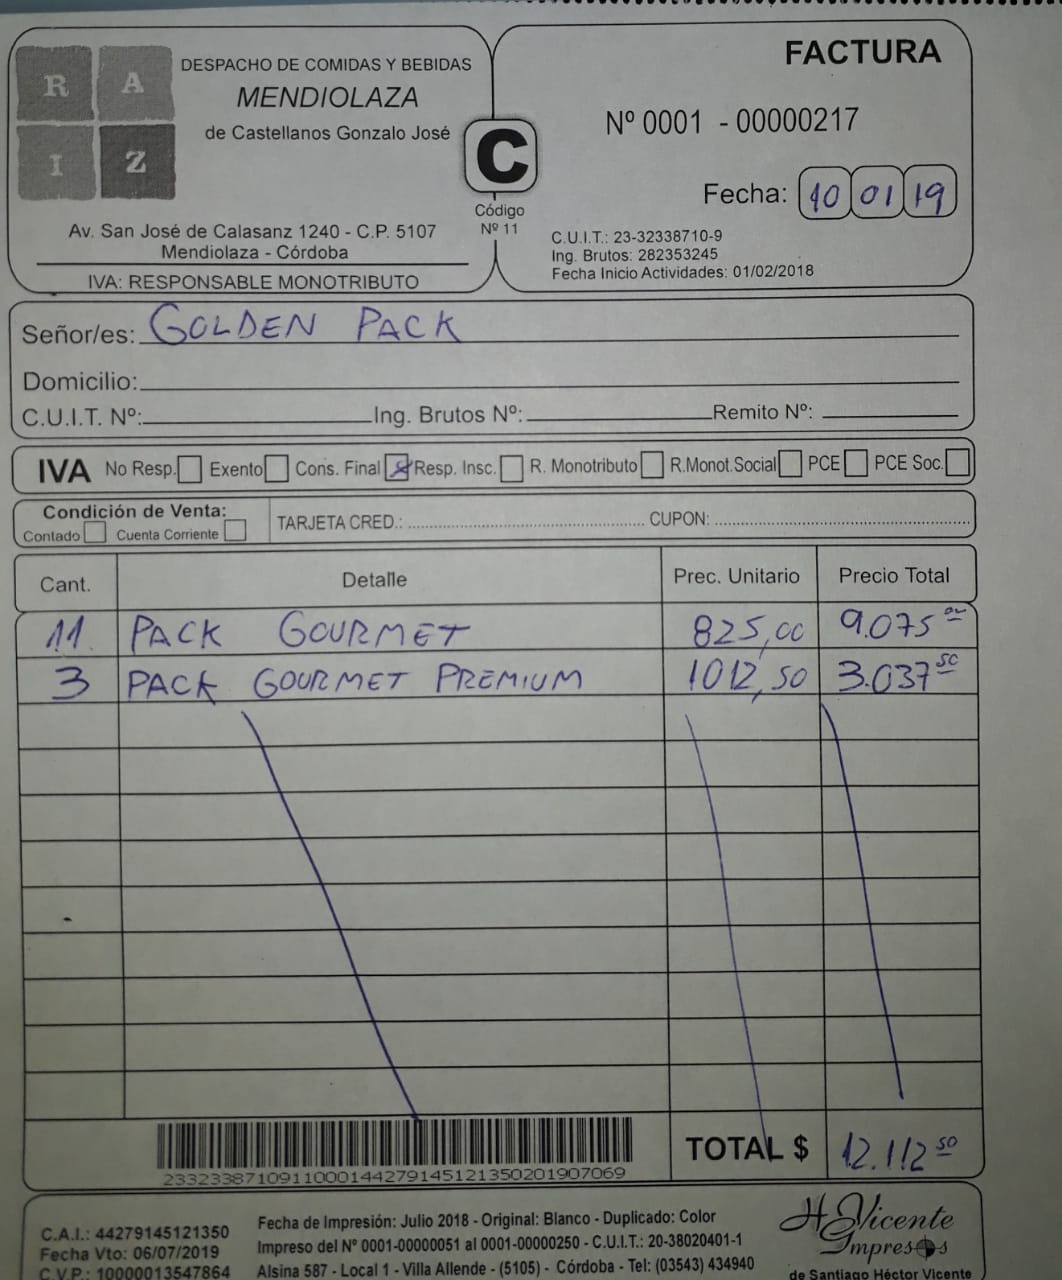 R A
I Z
DESPACHO DE COMIDAS Y BEBIDAS
MENDIOLAZA
de Castellanos Gonzalo José
Av. San José de Calasanz 1240 - C.P. 5107
Mendiolaza - Córdoba
IVA: RESPONSABLE MONOTRIBUTO
C
Código
Nº 11
FACTURA
Nº 0001 - 00000217
Fecha: 10 01 19
C.U.I.T.: 23-32338710-9
Ing. Brutos: 282353245
Fecha Inicio Actividades: 01/02/2018
Señor/es: GOLDEN PACK
Domicilio:
C.U.I.T. Nº: Ing. Brutos Nº: Remito Nº:
IVA No Resp. Exento Cons. Final Resp. Insc. R. Monotributo R.Monot.Social PCE PCE Soc.
Condición de Venta:
Contado Cuenta Corriente
TARJETA CRED.: CUPON:
Cant. Detalle Prec. Unitario Precio Total
11 PACK GOURMET 825,00 9.075 00
3 PACK GOURMET PREMIUM 1012,50 3.037 50
2332338710911000144279145121350201907069
TOTAL $ 12.112 50
C.A.I.: 44279145121350
Fecha Vto: 06/07/2019
C.V.P.: 10000013547864
Fecha de Impresión: Julio 2018 - Original: Blanco - Duplicado: Color
Impreso del Nº 0001-00000051 al 0001-00000250 - C.U.I.T.: 20-38020401-1
Alsina 587 - Local 1 - Villa Allende - (5105) - Córdoba - Tel: (03543) 434940
H Vicente
Impresos
de Santiago Héctor Vicente